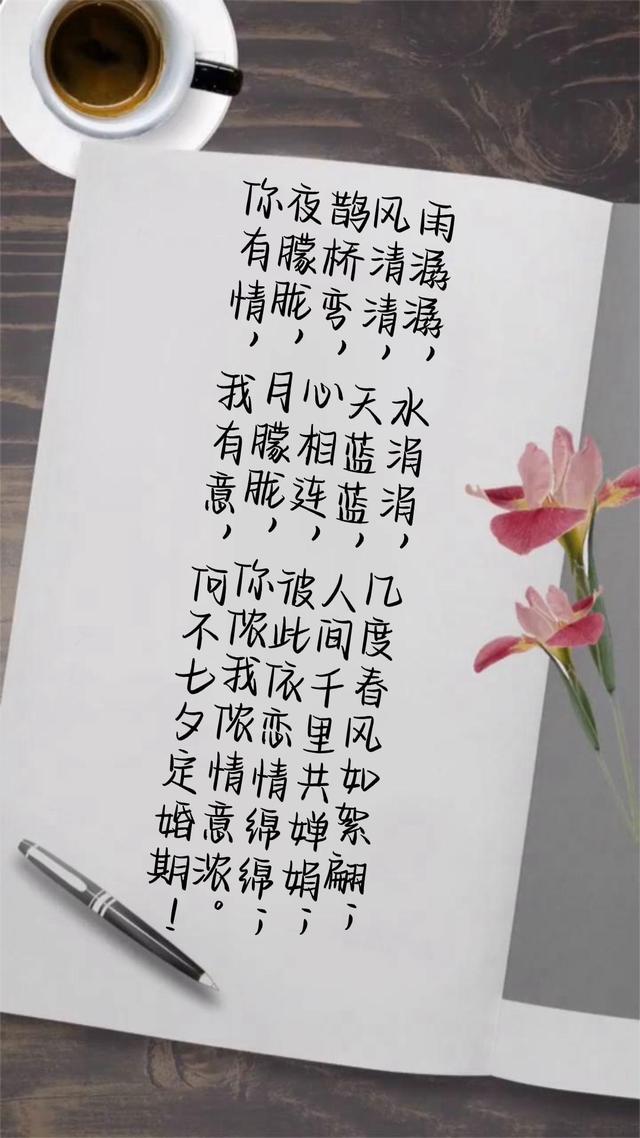 雨潺潺，水涓涓，几度春风如絮翩；
风清清，天蓝蓝，人间千里共婵娟；
鹊桥弯，心相连，彼此依恋情绵绵；
夜朦胧，月朦胧，你侬我侬情意浓。
你有情，我有意，何不七夕定婚期！